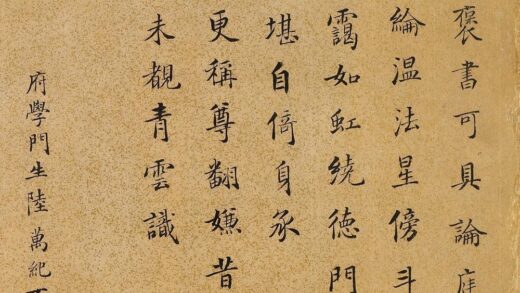 褒書可具論
綸温法星傍斗
靄如虹繞德門
堪自倚身承
更稱尊翻嫌昔
未覩青雲識
府學門生陸萬紀